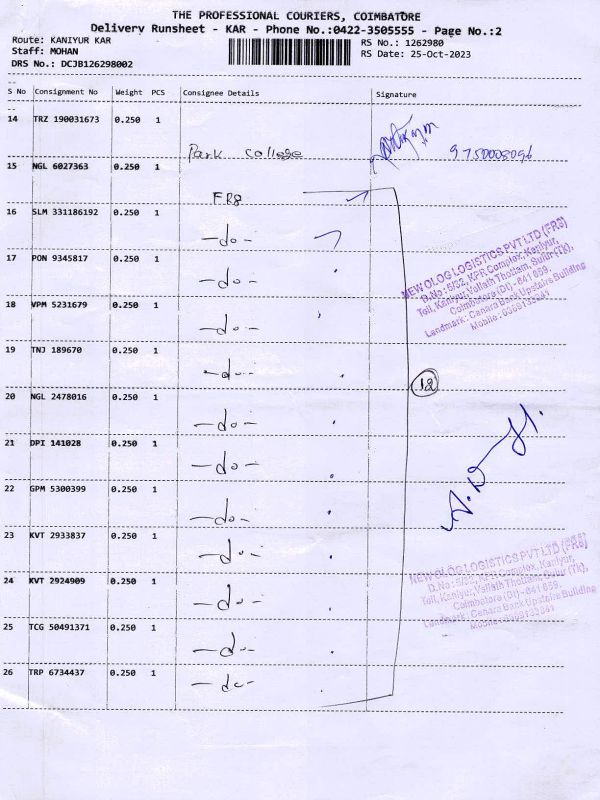 THE PROFESSIONAL COURIERS, COIMBATORE
Delivery Runsheet - KAR - Phone No.:0422-3505555 - Page No.:2
Route: KANIYUR KAR
Staff: MOHAN
DRS No.: DCJB126298002
RS No.: 1262980
RS Date: 25-Oct-2023
S No Consignment No Weight PCS Consignee Details Signature
14 TRZ 190031673 0.250 1
Park college
15 NGL 6027363 0.250 1
FR8
16 SLM 331186192 0.250 1
-do-
17 PON 9345817 0.250 1
-do-
18 VPM 5231679 0.250 1
-do-
19 TNJ 189670 0.250 1
-do-
20 NGL 2478016 0.250 1
-do-
21 DPI 141028 0.250 1
-do-
22 GPM 5300399 0.250 1
-do-
23 KVT 2933837 0.250 1
-do-
24 KVT 2924909 0.250 1
-do-
25 TCG 50491371 0.250 1
-do-
26 TRP 6734437 0.250 1
-do-
12
NEW OLOG LOGISTICS PVT LTD (FR8)
D.No: 5/52, KPR Complex, Kaniyur,
Toll, Kaniyur, Vallath Thottam, Sulur (Tk),
Coimbatore (Dt) - 641 659.
Landmark: Canara Bank Upstairs Building
Mobile:
NEW OLOG LOGISTICS PVT LTD (FR8)
D.No: 5/52, KPR Complex, Kaniyur,
Toll, Kaniyur, Vallath Thottam, Sulur (Tk),
Coimbatore (Dt) - 641 659.
Landmark: Canara Bank Upstairs Building
Mobile: